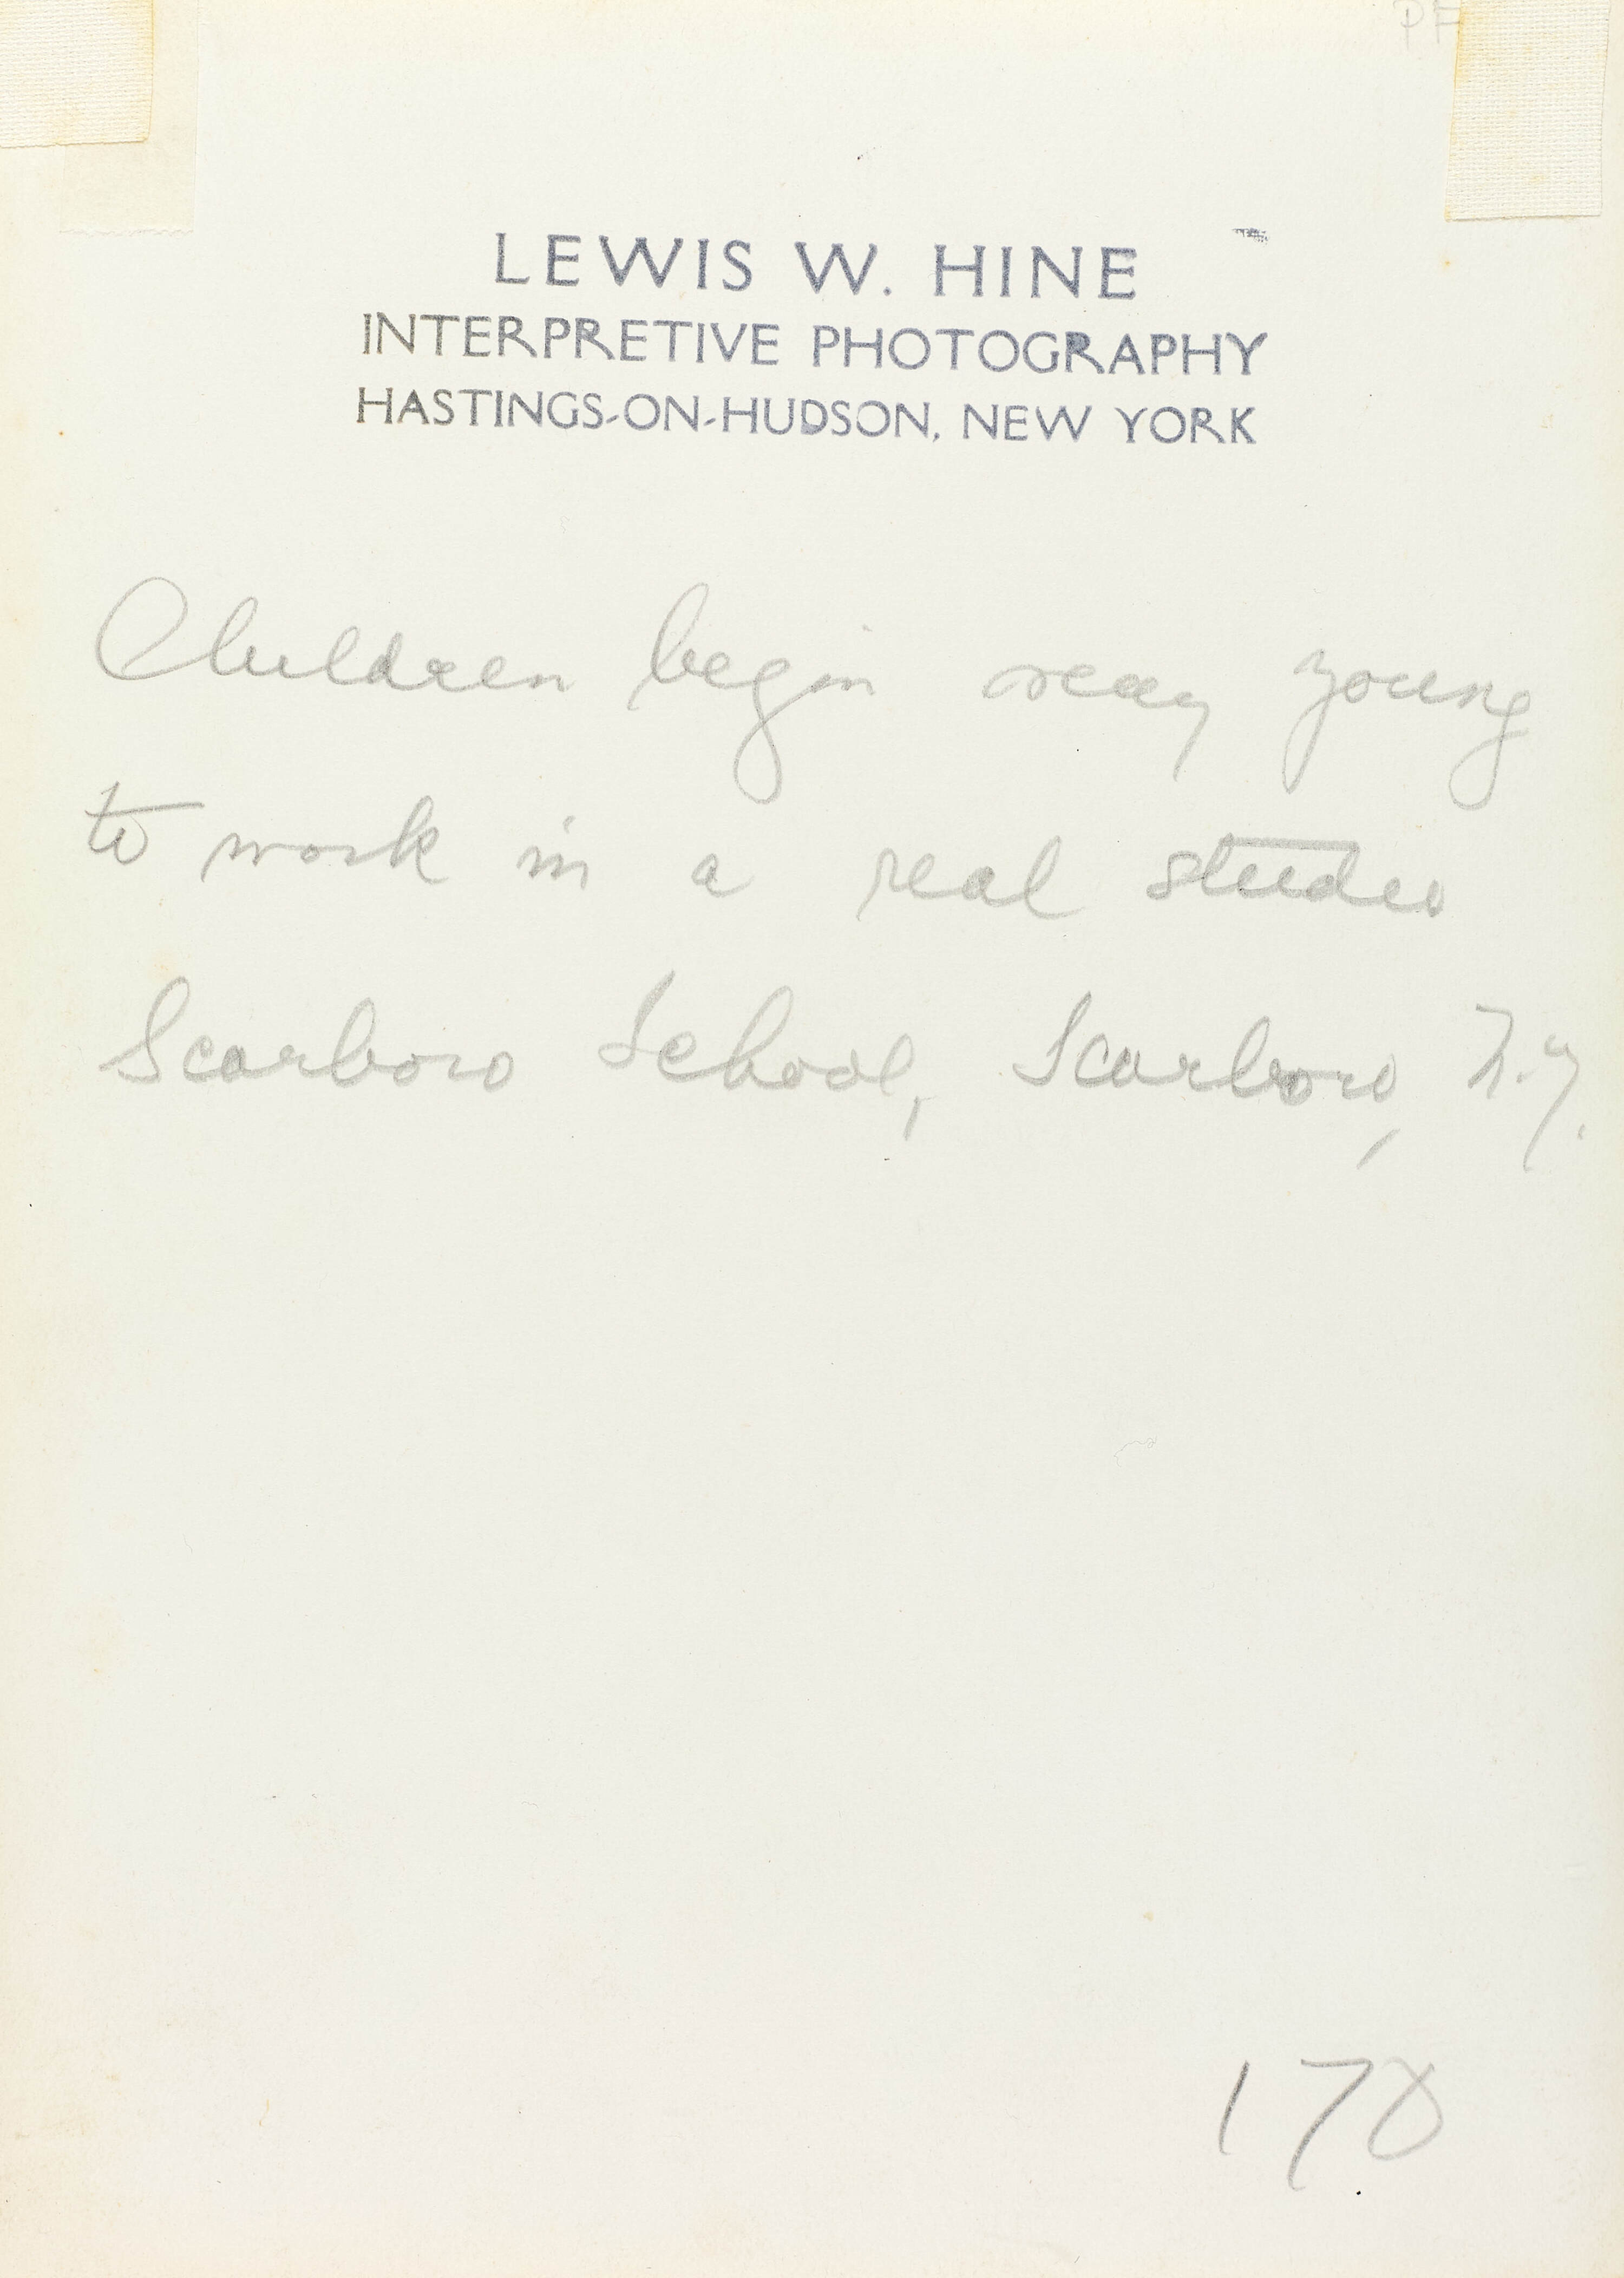 PF
LEWIS W. HINE
INTERPRETIVE PHOTOGRAPHY
HASTINGS-ON-HUDSON, NEW YORK
Children begin very young
to work in a real studio
Scarboro School, Scarboro, N.Y.
178